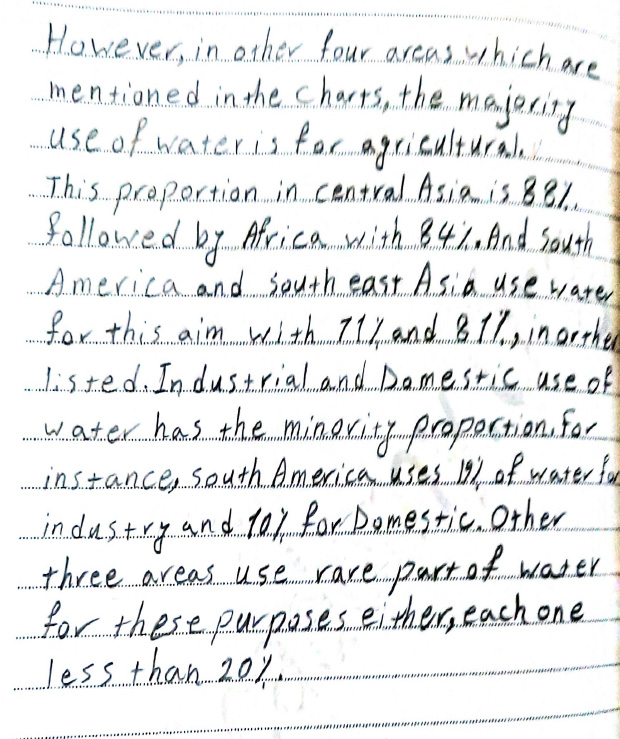 However, in other four areas which are
mentioned in the charts, the majority
use of water is for agricultural.
This proportion in central Asia is 88%
followed by Africa with 84%. And South
America and south east Asia use water
for this aim with 71% and 81%, in orther
listed. Industrial and Domestic use of
water has the minority proportion. For
instance, south America uses 19% of water for
industry and 10% for Domestic. Other
three areas use rare part of water
for these purposes either, each one
less than 20%.